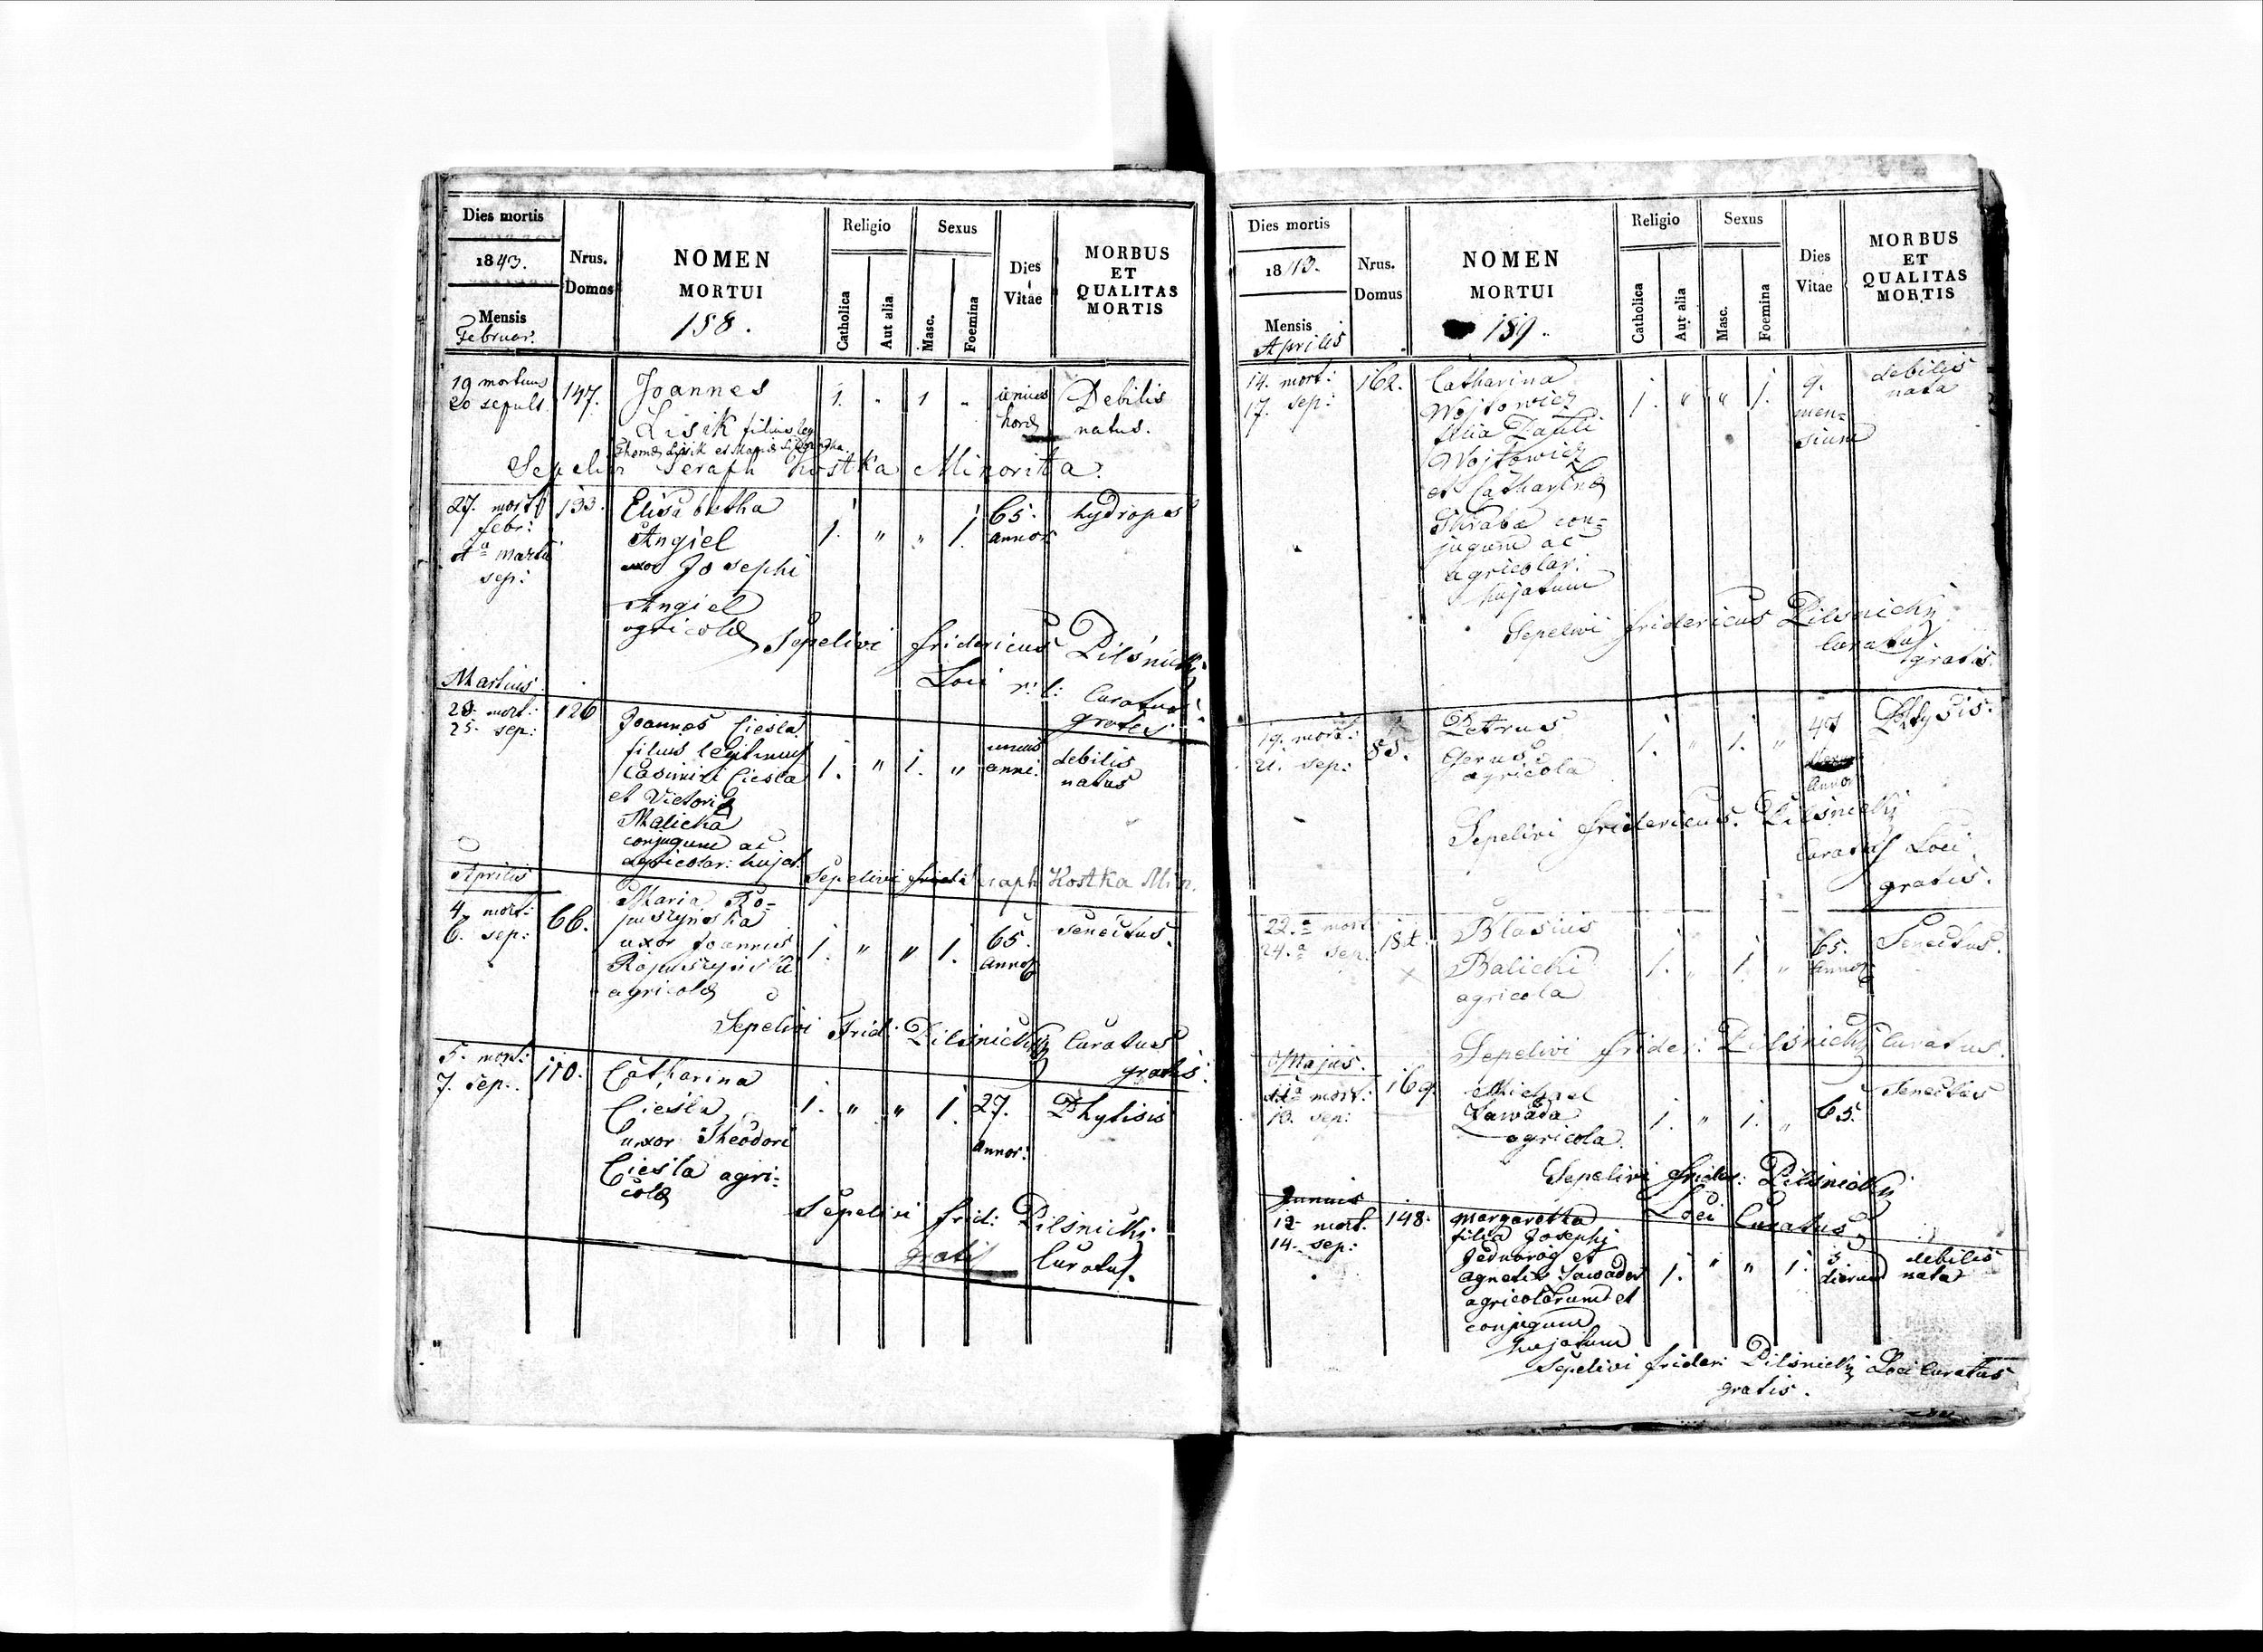 Dies mortis
1843.
Mensis
Februar.
Nrus.
Domus
NOMEN
MORTUI
158.
Religio
Catholica
Aut alia
Sexus
Masc.
Foemina
Dies
Vitae
MORBUS
ET
QUALITAS
MORTIS
19 mortuus
20 sepult.
147.
Joannes
Lisik filius leg
Thomæ Lisik et Maria
1. " 1 "
unius
horæ
Debilis
natus.
Sepelivi Seraph Kostka Minorita.
27. mort
febr:
1a martii
sep:
133.
Elisabetha
Angiel
uxor Josephi
Angiel
agricolæ
1. " " 1.
65.
annor.
hydrops
Sepelivi Fridericus Pilsnicky
Loci r: l: Curatus
gratis
Martius.
23. mort:
25. sep:
126
Joannes Ciesla
filius legitimus
Casimiri Ciesla
et Victoriæ
Malicka
conjugum ac
agricolar: hujat.
1. " 1. "
unius
anni.
debilis
natus
Sepelivi Seraph Kostka Min.
Aprilis
4. mort:
6. sep:
66.
Maria Ro=
puszynska
uxor Joannis
Ropuszynski
agricolæ
1. " " 1.
65.
annor
Senectus.
Sepelivi Frid: Pilsnicky Curatus
gratis.
5. mort:
7. sep:
110.
Catharina
Ciesla
uxor Theodori
Ciesla agri=
colæ
1. " " 1.
27.
annor:
Phtysis
Sepelivi frid: Pilsnicky
gratis Curatus.
Dies mortis
1843.
Mensis
Aprilis
Nrus.
Domus
NOMEN
MORTUI
159.
Religio
Catholica
Aut alia
Sexus
Masc.
Foemina
Dies
Vitae
MORBUS
ET
QUALITAS
MORTIS
14. mort:
17. sep:
162.
Catharina
Wojtowicz
filia Pauli
Wojtowicz
et Catharinæ
Skraba con=
jugum ac
agricolar.
hujatum
1. " " 1.
9.
men=
sium
debilis
nata
Sepelivi Fridericus Pilsnicky
Curatus
gratis.
19. mort:
21. sep:
85.
Petrus
Gerus
agricola
1. " 1. "
Annor
Phtysis.
Sepelivi Fridericus Pilsnicky
Curatus Loci
gratis.
22.a mort
24.a sep.
Blasius
Balicki
agricola
1. " 1. "
65.
annor
Senectus.
Sepelivi Frider: Pilsnicky Curatus.
Majus.
11a mort:
13. sep:
169.
Michael
Zawada
agricola.
1. " 1. "
65.
Senectus
Sepelivi frider: Pilsnicky
Loci Curatus
Junius
12. mort.
14. sep:
148.
Margaretha
filia Josephi
Jednorog et
Agnetis Zawada
agricolarum et
conjugum
hujatum
1. " " 1.
3.
dierum
debilis
nata
Sepelivi frider: Pilsnicky Loci Curatus
gratis.